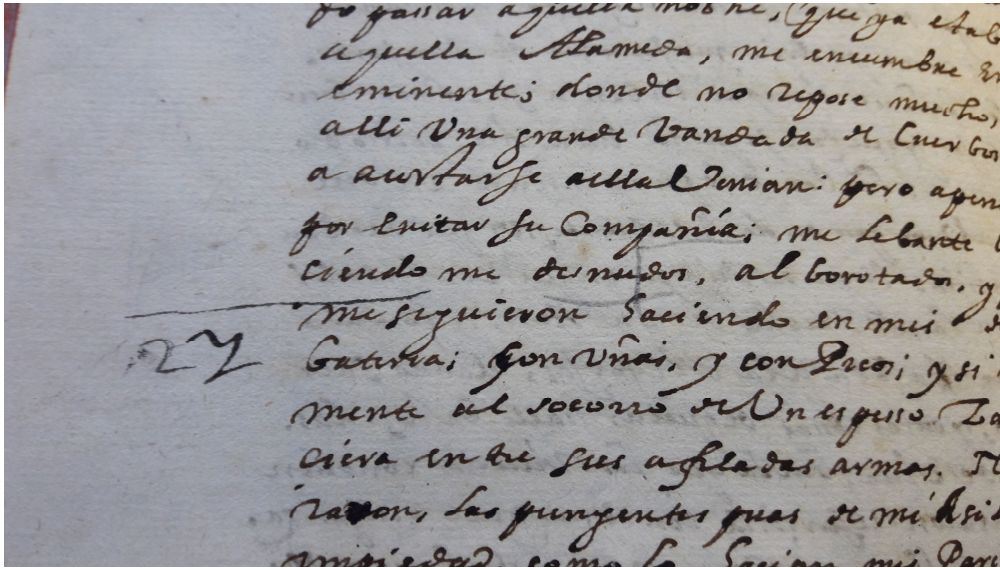 do passar aquella noche, (que ya estab
aquella Alameda, me encumbre en
eminente; donde no repose mucho,
alli Una grande Vandada de Cuerbos
a acostarse aella Venian: pero apen
por Evitar su Compañia; me lebante
ciendo me desnudos, alborotados, y
me siguieron haciendo en mis
bateria; con Uñas, y con Picos; y si
mente al socorro de Un espeso
ciera en tu sus afiladas armas.
27
razon, las pungentes puas de mi
impiedad como lo hacian mis Par